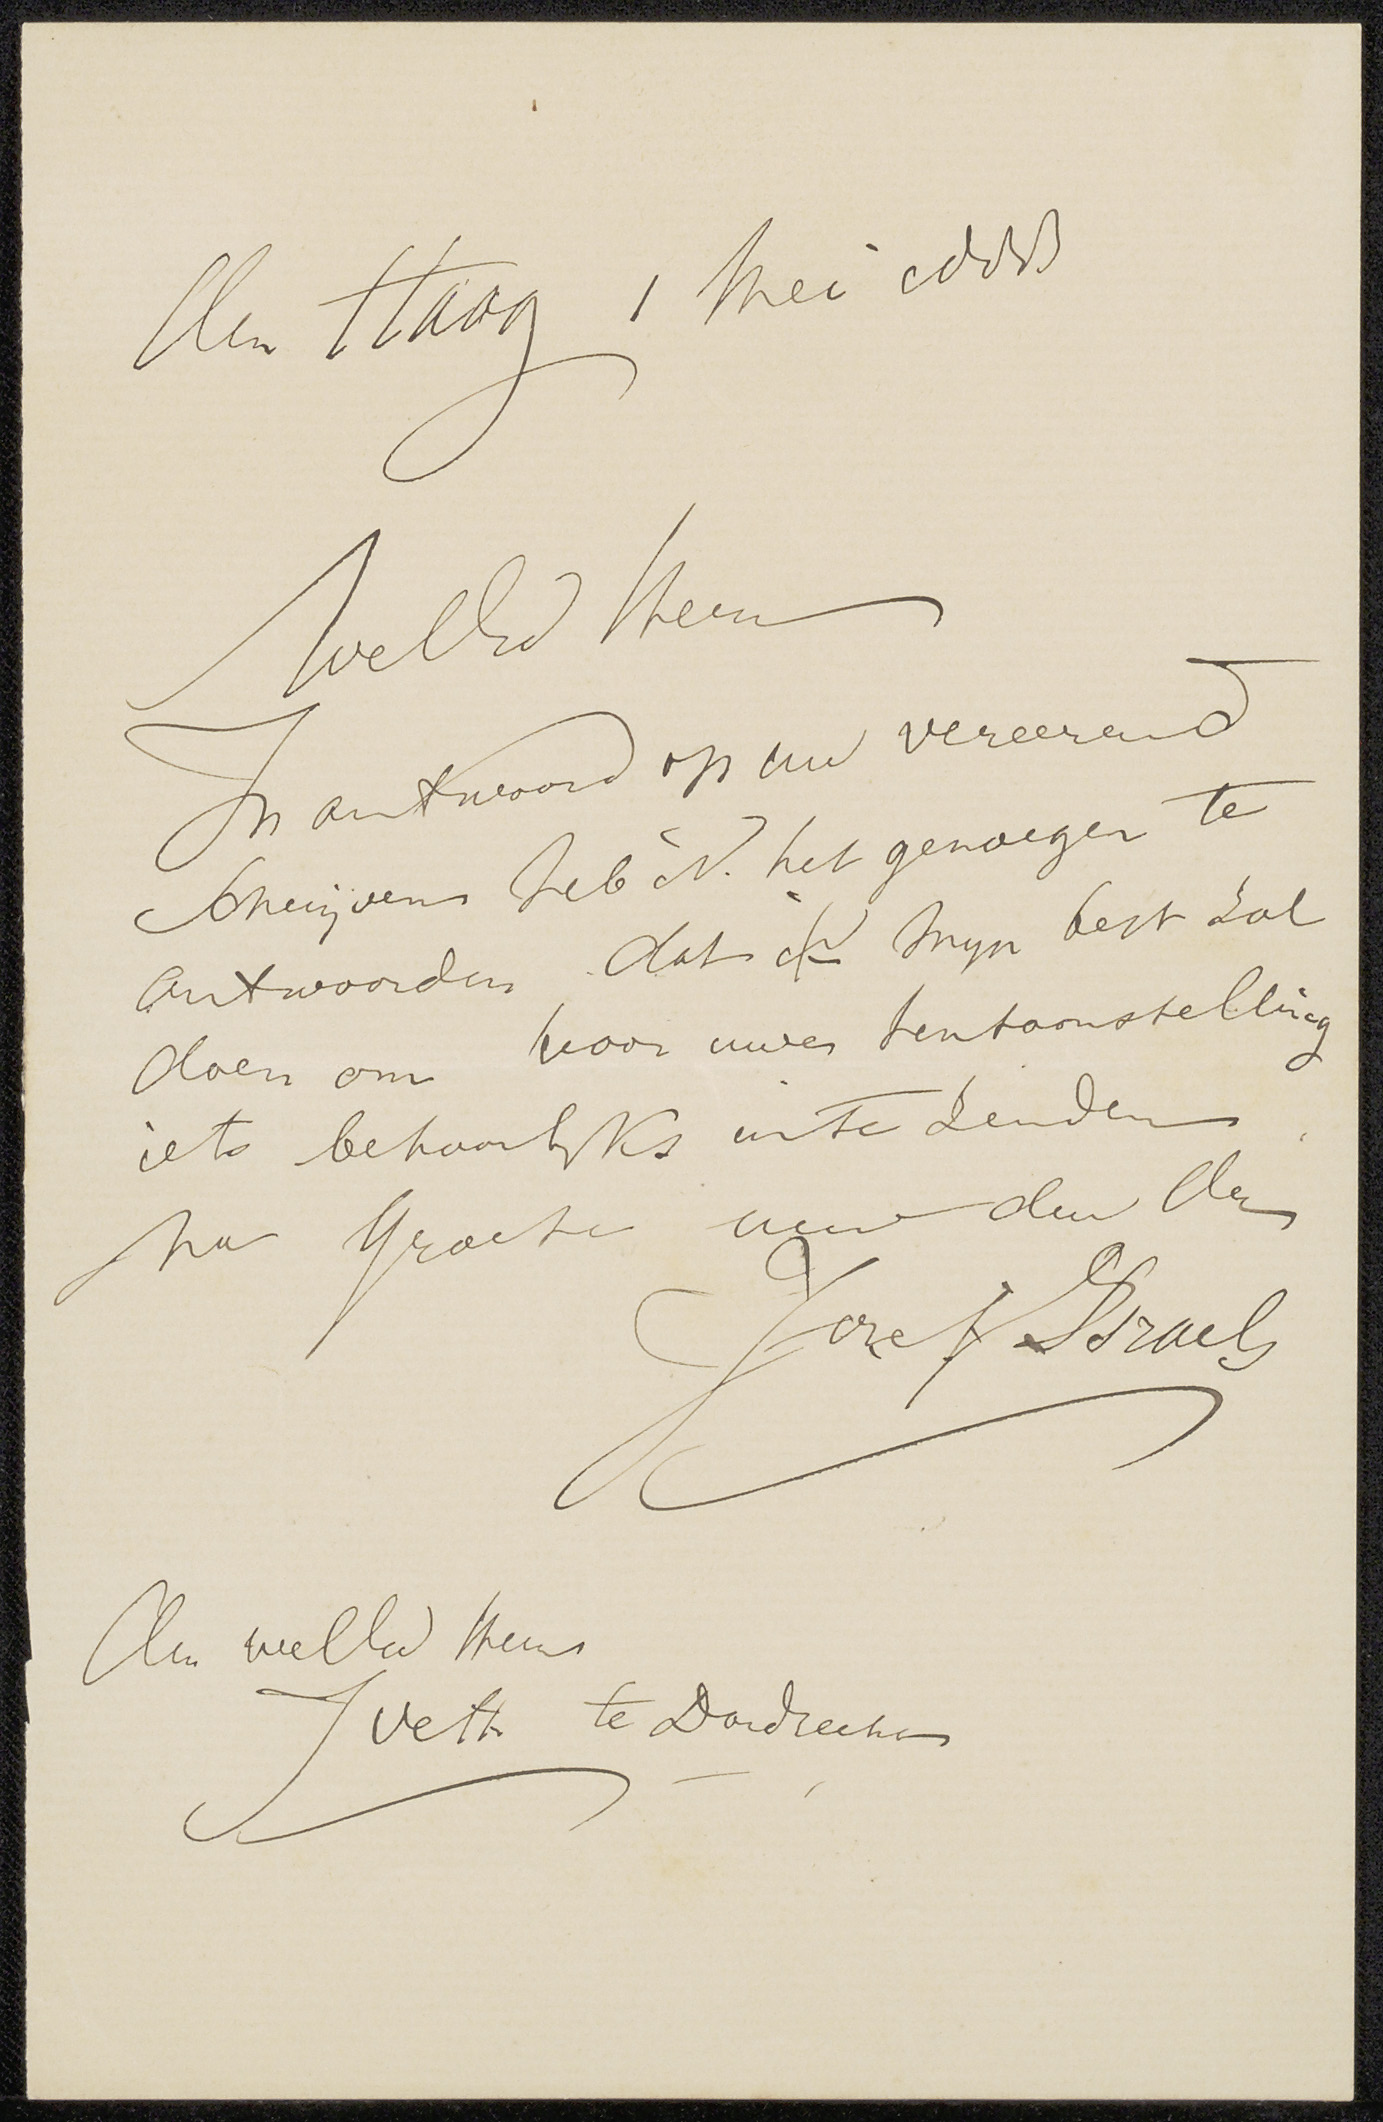 Den Haag 1 Mei 1888
WelEd Heer
In antwoord op uw vereerend
schrijven heb ik het genoegen te
antwoorden dat ik mijn best zal
doen om voor uwe tentoonstelling
iets behoorlijks in te zenden
na groete uw dw Dr
Jozef Israels
Den WelEd Heer
J Veth te Dordrecht